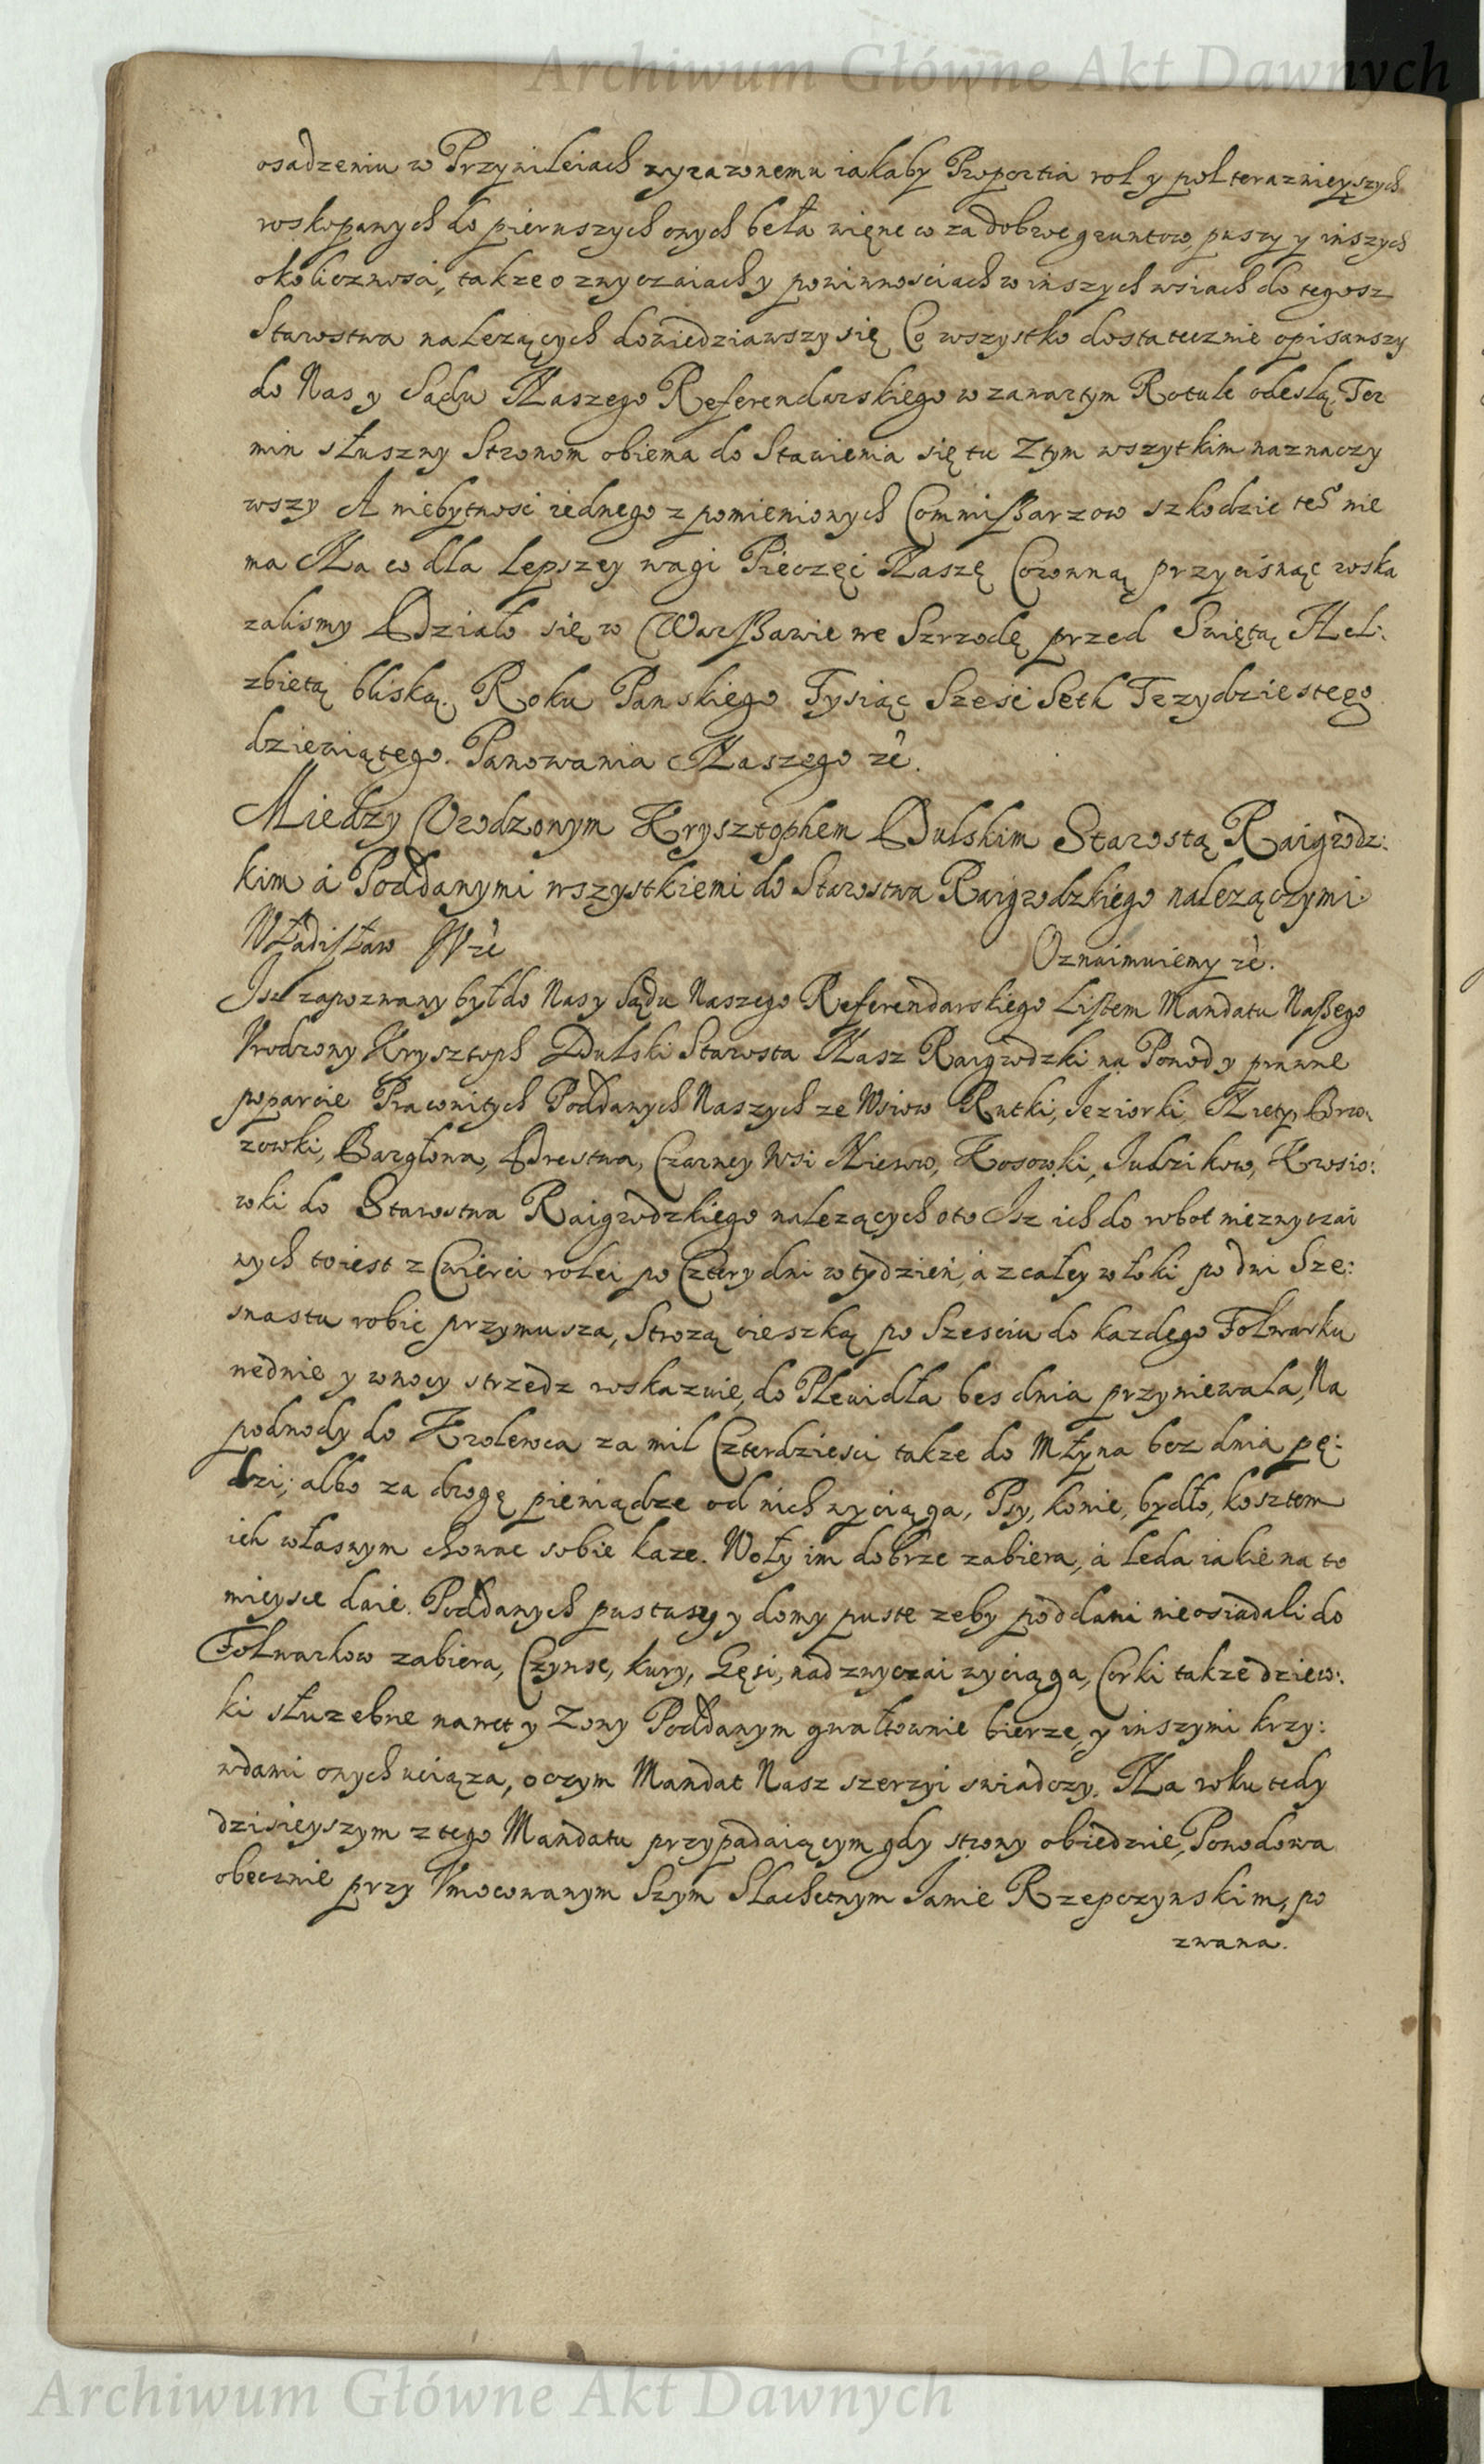 Archiwum Główne Akt Dawnych
osadzeniu w Przywileiach wyrazonemu iakaby Proportia rol y pol teraznieyszych
roskopanych do pierwszych onych beła więnc co za dobroć gruntow puszy y inszych
okolicznosci, takze o zwyczaiach y powinnosciach w inszych wsiach do tegosz
Starostwa nalezących dowiedziawszy się Co wszystko dostatecznie opisawszy
do Nas y Sądu Naszego Referendarskiego w zawartym Rotule odeslą, Ter
min słuszny Stronom obiema do Stawienia się tu Z tym wszytkim naznaczy
wszy A niebytnosc iednego z pomienionych Commißarzow szkodzic tes nie
ma Na co dla Lepszey wagi Pieczęć Naszę Coronną przycisnąc roska
zalismy Działo się w Warßawie we Szrzodę przed Swiętą Hel:
zbietą bliską. Roku Panskiego Tysiąc Szesc Seth Trzydziestego
dziewiątego. Panowania Naszego zc̃.
Miedzy Vrodzonym Krysztophem Dulskim Starostą Raigrodz:
kim á Poddanymi wszystkiemi do Starostwa Raigrodzkiego nalezączymi
Władisław IV zc̃
Oznaimuiemy zc̃.
Isz zapozwany był do Nas y Sądu Naszego Referendarskiego Listem Mandatu Naßego
Vrodzony Krysztoph Dulski Starosta Nasz Raigrodzki na Powod y prawne
poparcie Pracowitych Poddanych Naszych ze Wsiow Rutki, Jeziorki, Kuety, Brzo
zowki, Bargłowa, Drestwa, Czarney Wsi Kiewo, Kosowki, Judzikow, Krosio:
wki do Starostwa Raigrodzkiego nalezących oto Isz ich do robot niezwyczai
nych to iest z Cwierci rolei po Cztery dni w tydzien, á z całey włoki po dni Sze:
snastu robic przymusza, Strozą cieszką po Szesciu do kazdego Folwarku
wednie y w nocy strzedz roskazuie, do Plewidła bes dnia przyniewala, Na
podwody do Krolewca za mil Czterdziesci takze do Młyna bez dnia pę:
dzi; albo za drogę pieniądze od nich wyciąga, Psy, konie, bydło, kosztem
ich własnym chowac sobie kaze. Woły im dobrze zabiera, á leda iakie na to
mieysce daie. Poddanych pustuszy y domy puste zeby poddani nieosiadali do
Folwarkow zabiera, Czynse, kury, Gęsi, nad zwyczai wyciąga, Corki takze dziew:
ki słuzebne nawet y Zony Poddanym gwałtownie bierze, y inszymi krzy:
wdami onych uciąza, o czym Mandat Nasz szerzyi swiadczy. Na roku tedy
dzisieyszym z tego Mandatu przypadaiącym gdy strony obiedwie, Powodowa
obecznie przy Vmocowanym Szym Slachetnym Janie Rzepczynskim, po
zwana.
Archiwum Główne Akt Dawnych